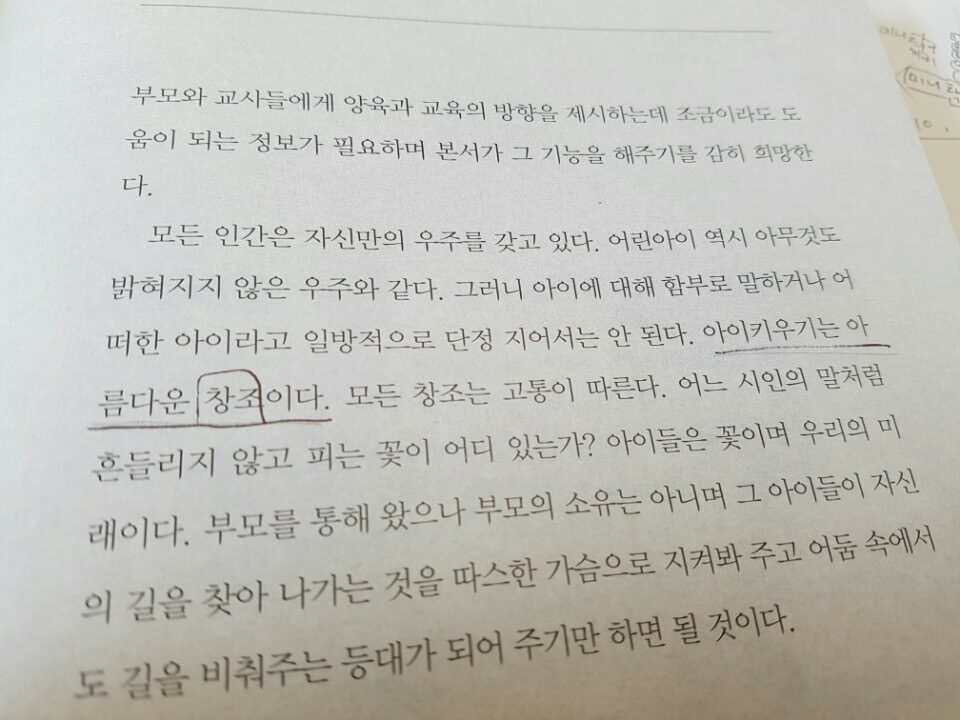 부모와 교사들에게 양육과 교육의 방향을 제시하는데 조금이라도 도
움이 되는 정보가 필요하며 본서가 그 기능을 해주기를 감히 희망한
다.
모든 인간은 자신만의 우주를 갖고 있다. 어린아이 역시 아무것도
밝혀지지 않은 우주와 같다. 그러니 아이에 대해 함부로 말하거나 어
떠한 아이라고 일방적으로 단정 지어서는 안 된다. 아이키우기는 아
름다운 창조이다. 모든 창조는 고통이 따른다. 어느 시인의 말처럼
흔들리지 않고 피는 꽃이 어디 있는가? 아이들은 꽃이며 우리의 미
래이다. 부모를 통해 왔으나 부모의 소유는 아니며 그 아이들이 자신
의 길을 찾아 나가는 것을 따스한 가슴으로 지켜봐 주고 어둠 속에서
도 길을 비춰주는 등대가 되어 주기만 하면 될 것이다.
미니
미니
10.